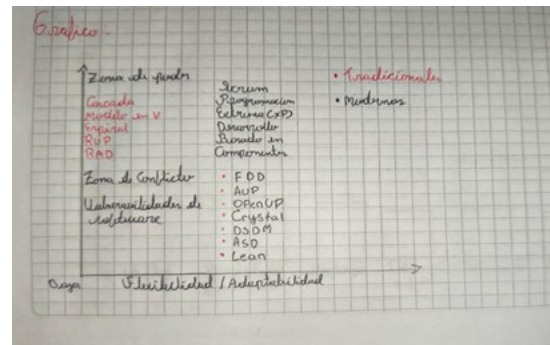 Grafico:
Zona de poder
Cascada
Modelo en V
Espiral
RUP
RAD
Zona de Conflicto
Vulnerabilidades de
software
Scrum
Programacion
Extrema (XP)
Desarrollo
Basado en
Componentes
• FDD
• AUP
• OPenUP
• Crystal
• DSDM
• ASD
• Lean
• Tradicionales
• Modernas
Baja
Flexibilidad / Adaptabilidad